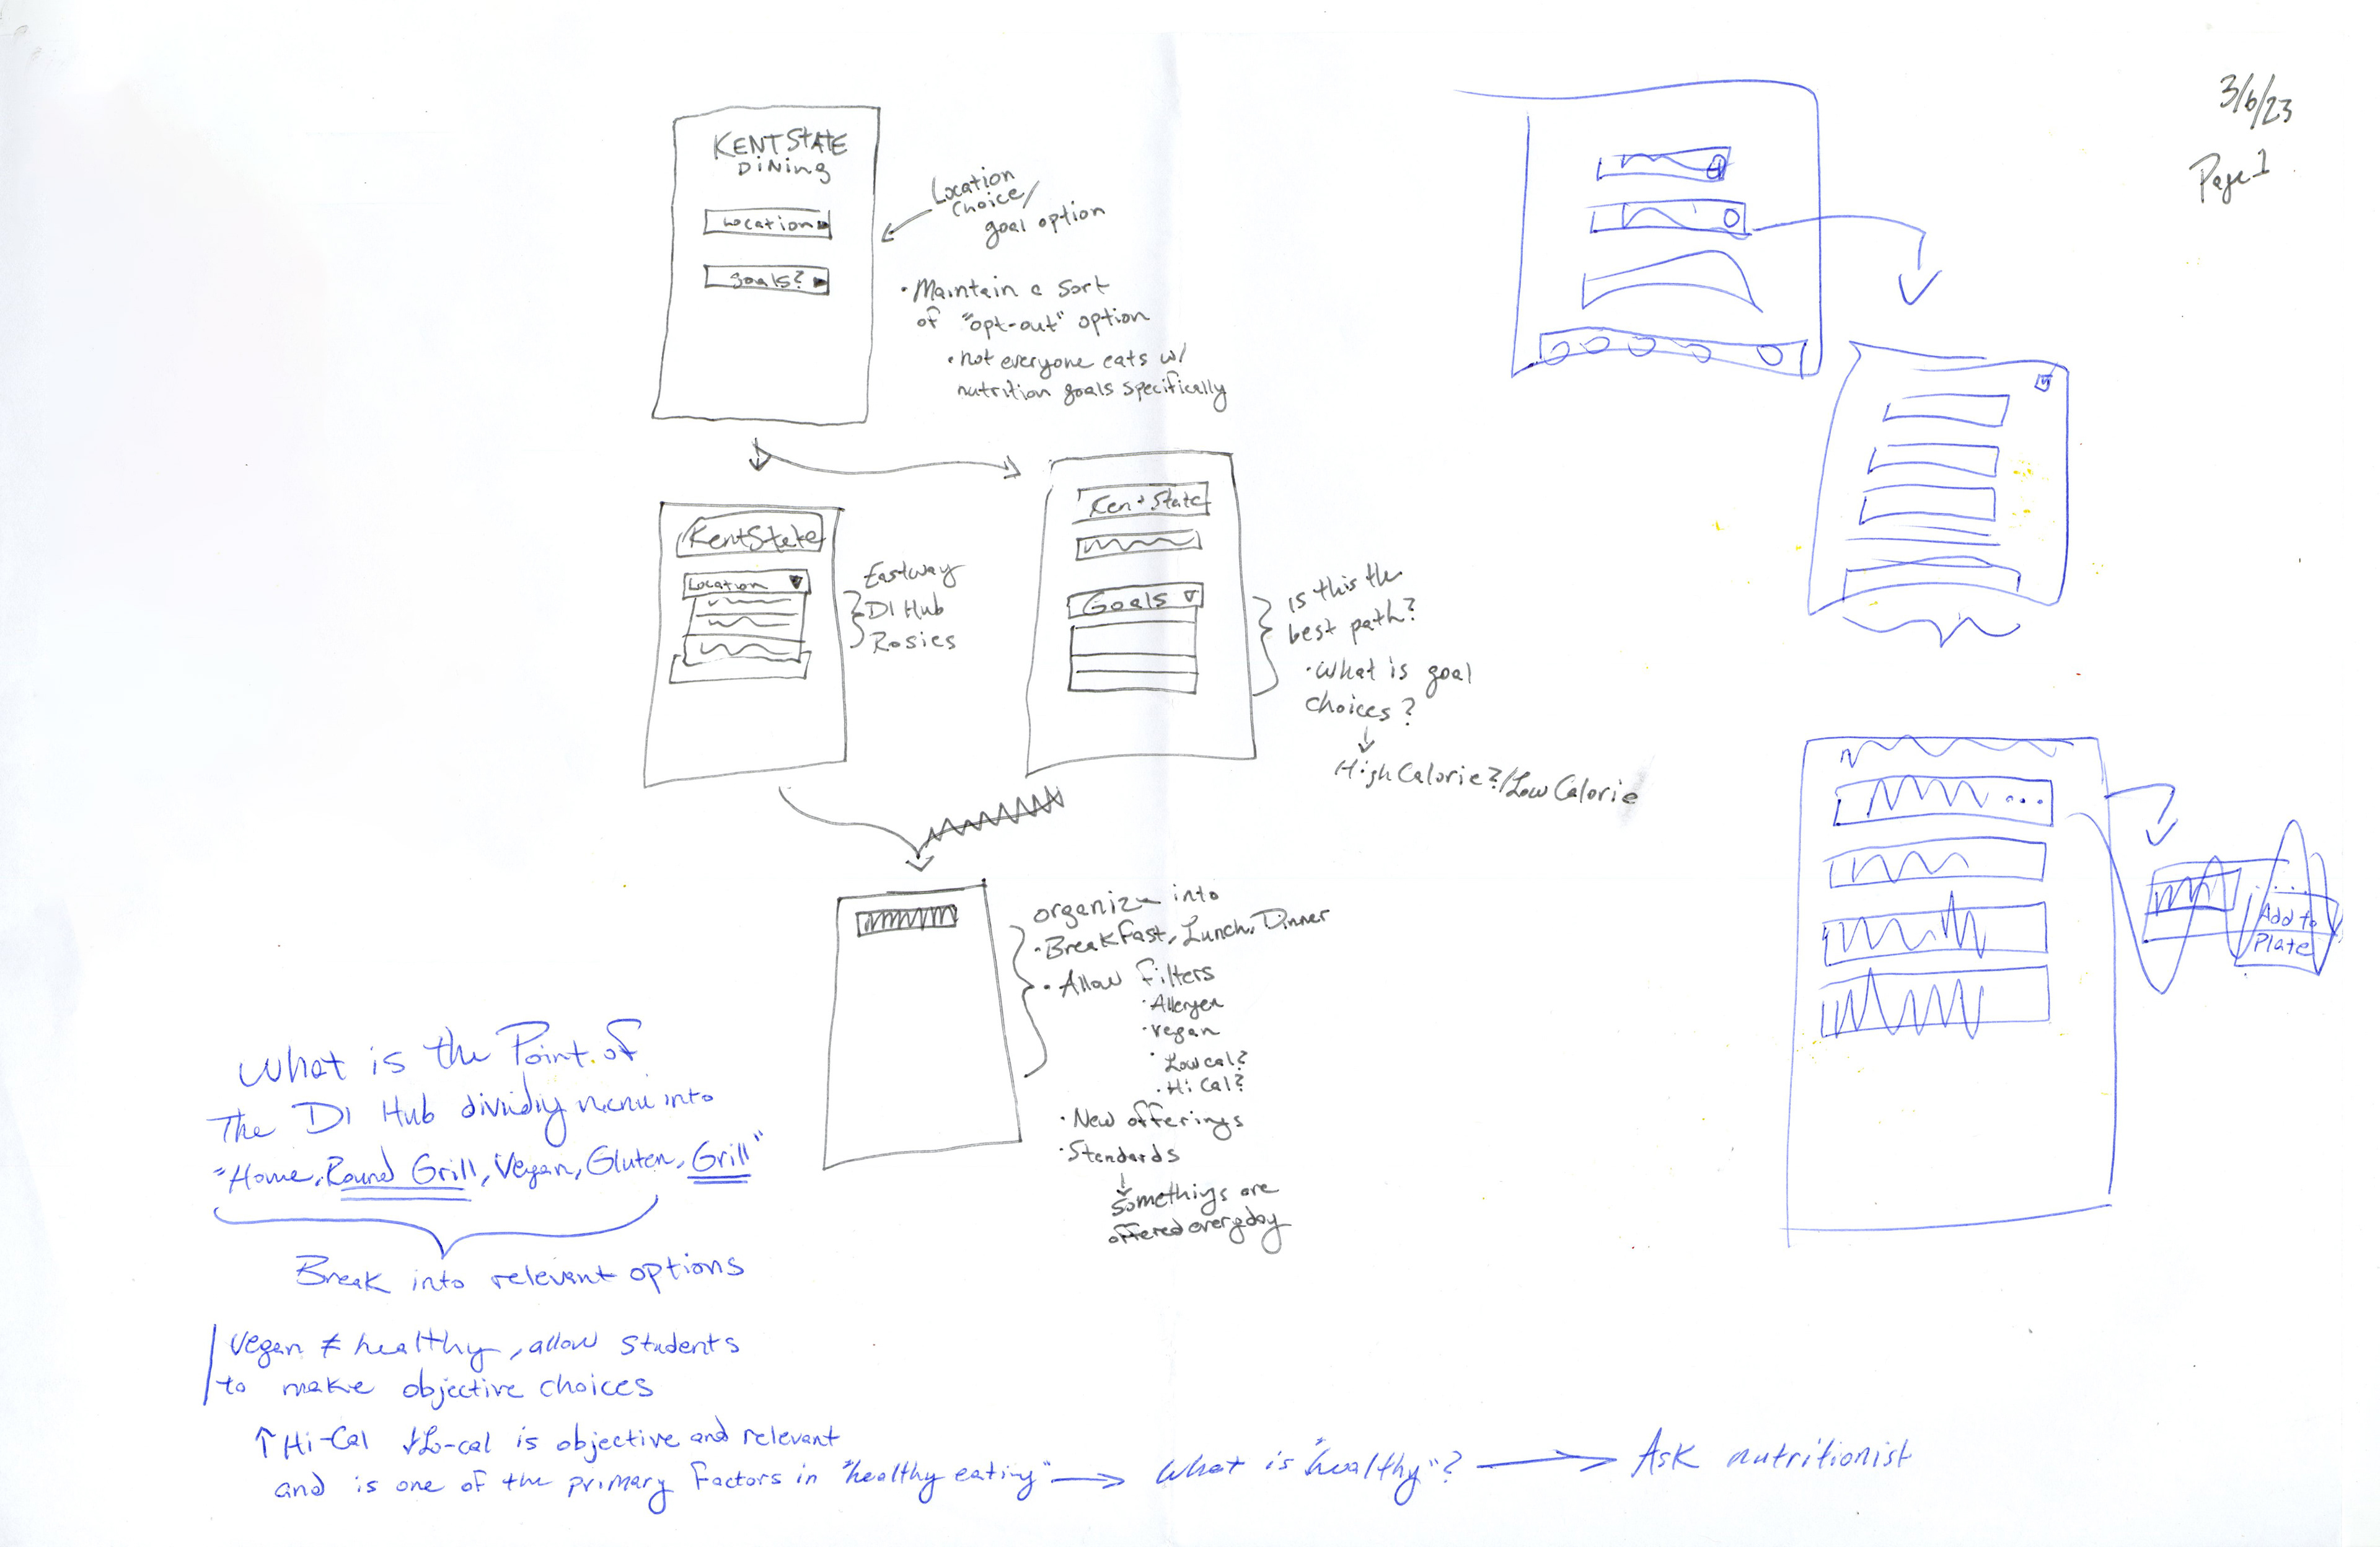 3/6/23
Page 1
KENT STATE
DiNing
Location
Goals?
Location
Choice/
goal option
• Maintain a sort
of "opt-out" option
• not everyone eats w/
nutrition goals specifically
Kent State
Location
Eastway
DI Hub
Rosies
Kent State
Goals
Is this the
best path?
• What is goal
choices?
High Calorie?/Low Calorie
organize into
• Breakfast, Lunch, Dinner
• Allow Filters
• Allergen
• vegan
• Low cal?
• Hi Cal?
• New offerings
• Standards
Somethings are
offered everyday
Add to
Plate
What is the Point of
The DI Hub dividing menu into
"Home, Round Grill, Vegan, Gluten, Grill"
Break into relevant options
Vegan ≠ healthy, allow students
to make objective choices
↑ Hi-Cal ↓ Lo-cal is objective and relevant
and is one of the primary factors in "healthy eating" → What is "healthy"? → Ask nutritionist